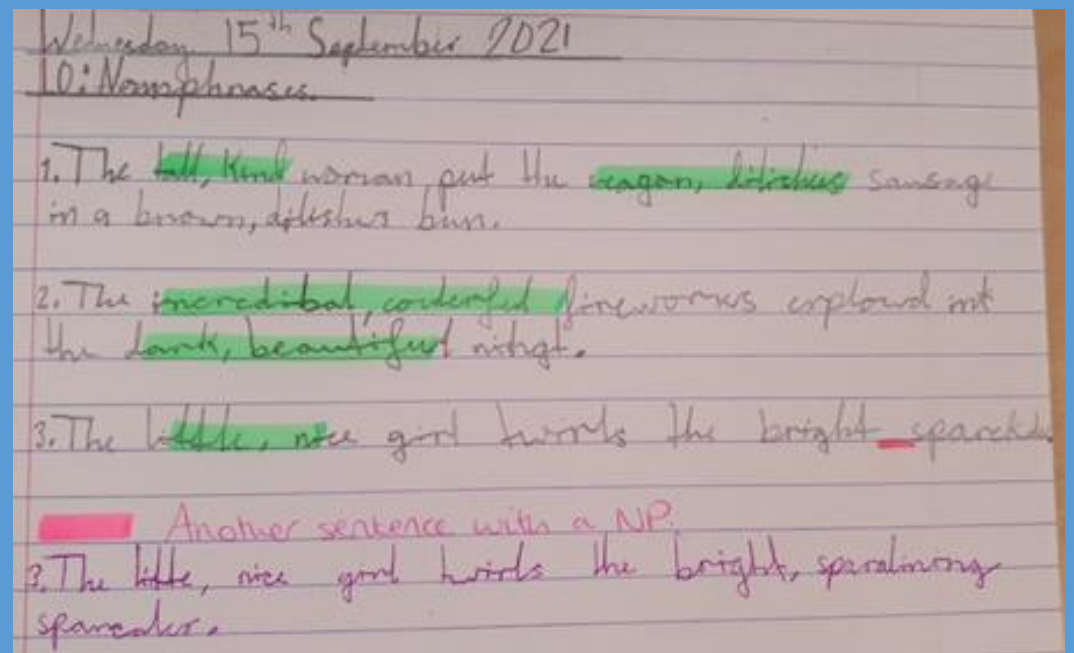 Wednesday 15th September 2021
LO: Noun phrases.
1. The tall, kind woman put the veagan, dilishus sausage
in a brown, dilishus bun.
2. The incredibal, coulerful fireworks explowd int
the dark, beautiful nihgt.
3. The little, nice girl twirls the bright sparckler
Another sentence with a NP.
3. The little, nice girl twirls the bright,
sparcaler.